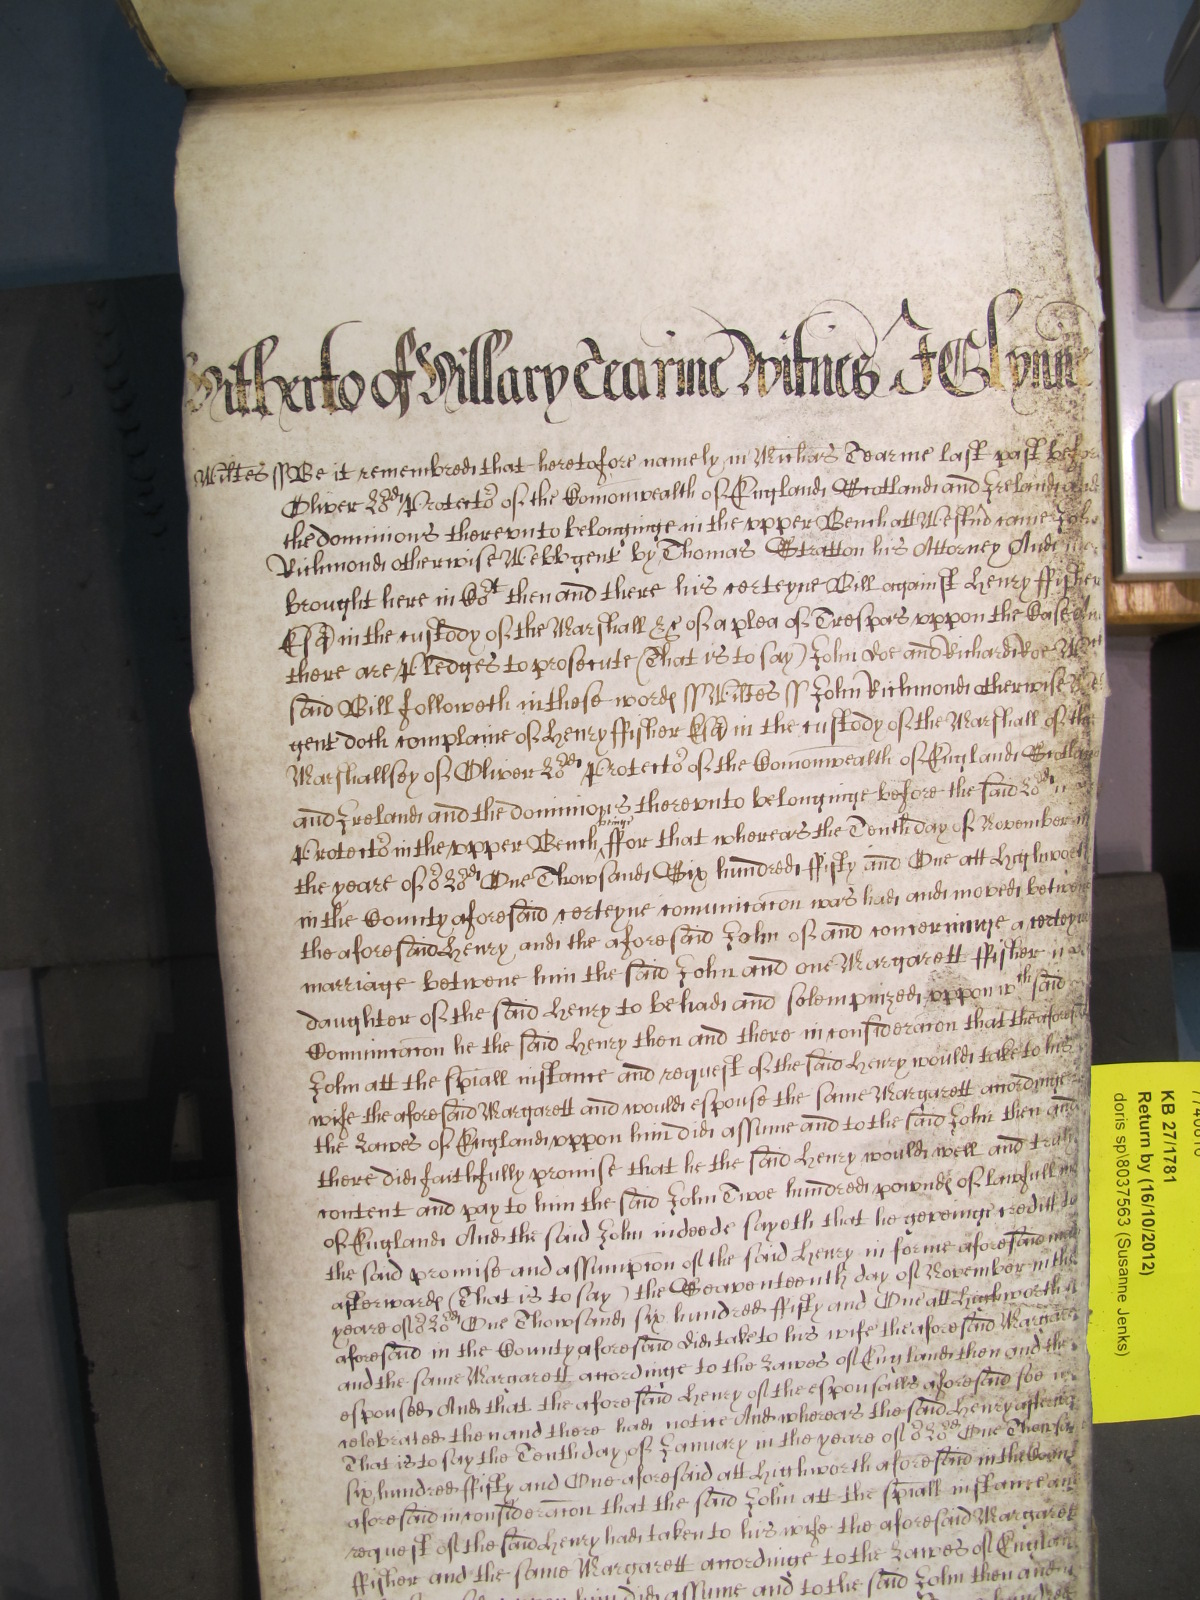 Hitherto of Hillary Tearme Witnes J Glynne
Wiltes ss Be it remembred that heretofore namely in Michās Tearme last past before
Oliver Lord Protector of the Comonwealth of England Scotland and Ireland and
the dominions therevnto belonginge in the vpper Bench att Westm̄ came John
Richmond otherwise Webb gent by Thomas Stratton his Attorney And
brought here in Cort then and there his certeyne Bill against Henry ffisher
Esq in the custody of the Marshall &c of a plea of Trespas vppon the Case And
there are Pledges to prosecute (That is to say) John Doe and Richard Roe Wch
said Bill followeth in these words ss Wiltes ss John Richmond otherwise Webb
gent doth complaine of Henry ffisher Esq in the custody of the Marshall of the
Marshallsey of Oliver Lord Protector of the Comonwealth of England Scotland
and Ireland and the dominions therevnto belonginge before the said Lord
Protector in the vpper Bench beinge ffor that whereas the Tenth day of November in
the yeare of or Lord One Thowsand Six hundred ffifty and One att Highworth
in the County aforesaid certeyne comunicacon was had and moved betweene
the aforesaid Henry and the aforesaid John of and concerninge a certeyne
marriage betwene him the said John and one Margarett ffisher
daughter of the said Henry to be had and solempnized vppon wch said
Comunicacon he the said Henry then and there in consideracon that the aforesaid
John att the spiall instance and request of the said Henry would take to his
wife the aforesaid Margarett and would espouse the same Margarett accordinge
the Lawes of England vppon him did assume and to the said John then and
there did faithfully promise that he the said Henry would well and truly
content and pay to him the said John Twoe hundred pownds of lawfull
of England And the said John indeede sayeth that he geveinge creditt to
the said promise and assumpcon of the said Henry in forme aforesaid made
afterwards (That is to say) the Seaventeenth day of November in the
yeare of or Lord One Thowsand six hundred ffifty and One att Highworth
aforesaid in the County aforesaid did take to his wife the aforesaid Margarett
and the same Margarett accordinge to the Lawes of England then and there
espoused And that the aforesaid Henry of the espousalls aforesaid soe
celebrated then and there had notice And whereas the said Henry afterwards
That is to say the Tenth day of January in the yeare of or Lord One Thowsand
six hundred ffifty and One aforesaid att Highworth aforesaid in the County
aforesaid in consideracon that the said John att the spiall instance and
request of the said Henry had taken to his wife the aforesaid Margarett
ffisher and the same Margarett accordinge to the Lawes of England
him did assume and to the said John then and
hundred
KB 27/1781
Return by (16/10/2012)
doris sp\8037563 (Susanne Jenks)